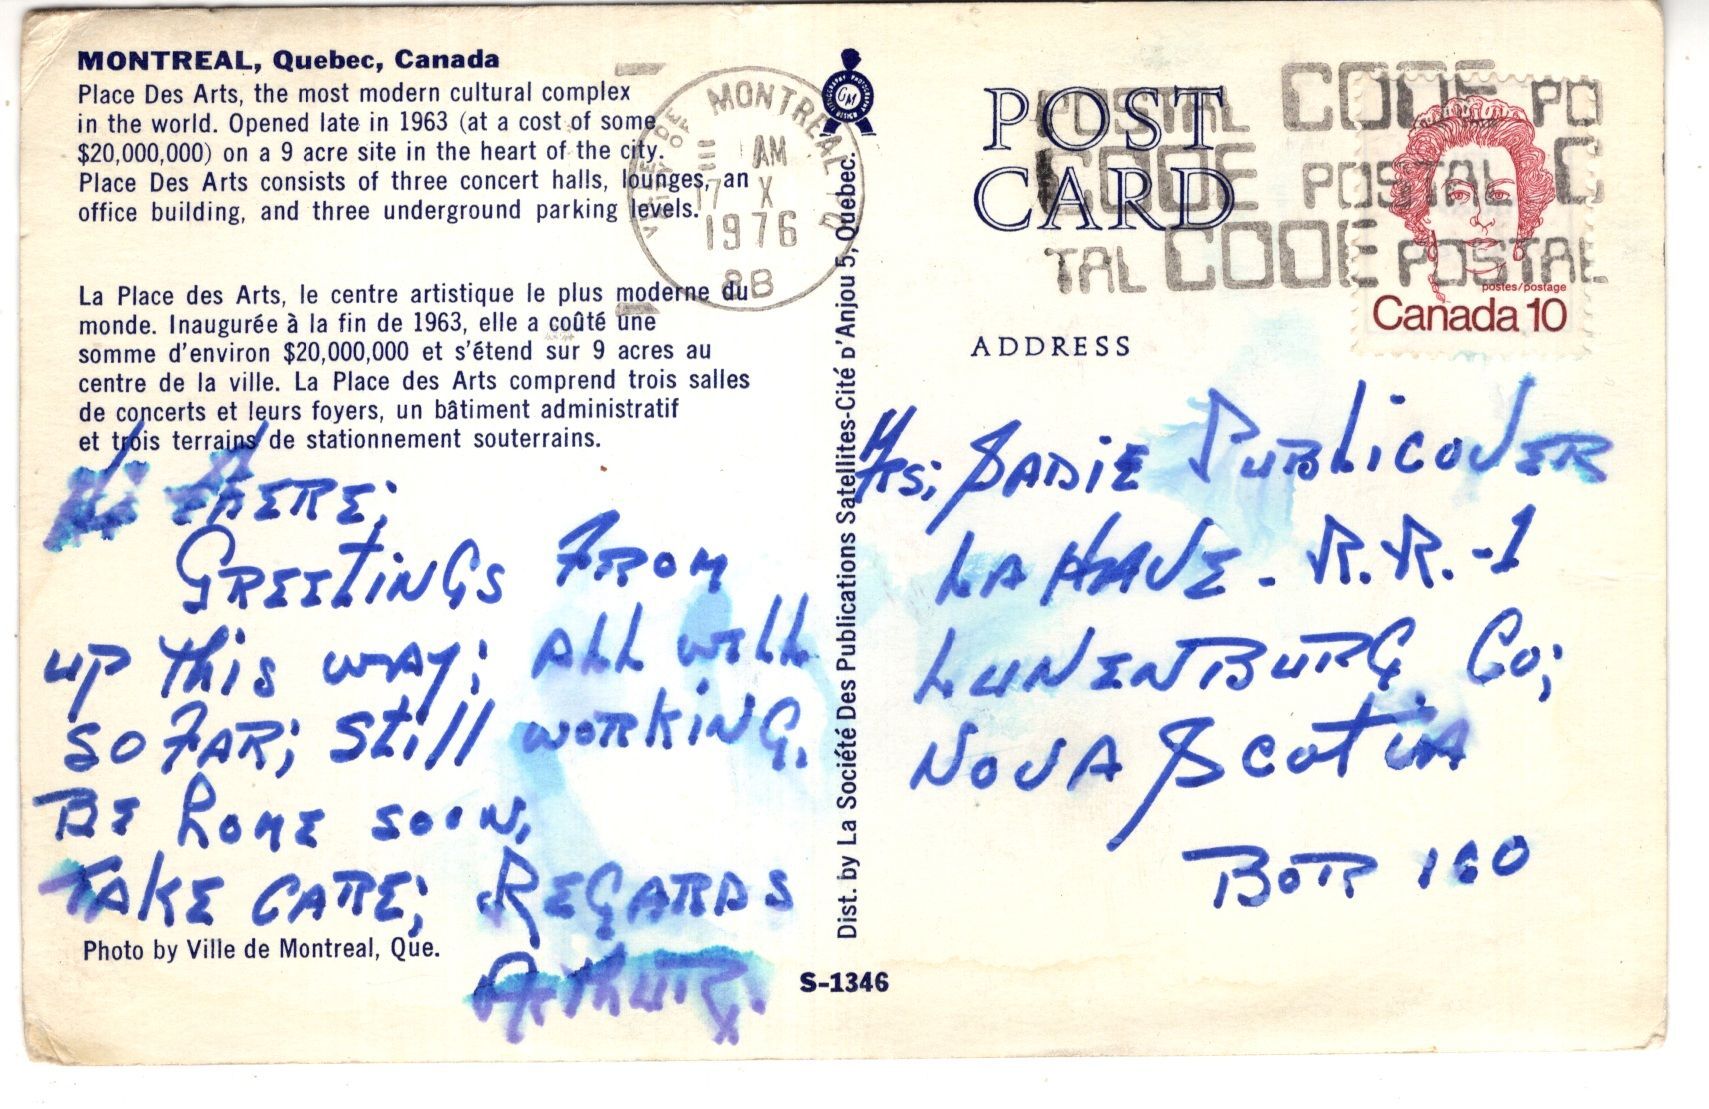 MONTREAL, Quebec, Canada
Place Des Arts, the most modern cultural complex
in the world. Opened late in 1963 (at a cost of some
$20,000,000) on a 9 acre site in the heart of the city.
Place Des Arts consists of three concert halls, lounges, an
office building, and three underground parking levels.
La Place des Arts, le centre artistique le plus moderne du
monde. Inaugurée à la fin de 1963, elle a coûté une
somme d'environ $20,000,000 et s'étend sur 9 acres au
centre de la ville. La Place des Arts comprend trois salles
de concerts et leurs foyers, un bâtiment administratif
et trois terrains de stationnement souterrains.
Hi THERE;
GREETiNGS FROM
UP This WAY; ALL WELL
SO FAR; Still WORKiNG.
BE HOME SOON.
TAKE CARE; REGARDS
ARThUR.
Photo by Ville de Montreal, Que.
S-1346
Dist. by La Société Des Publications Satellites-Cité D'Anjou 5, Quebec.
GM
MONTREAL
AM
17 X
1976
8B
POST
CARD
POSTAL CODE PO
CODE POSTAL C
TAL CODE POSTAL
postes/postage
Canada 10
ADDRESS
MRS; SADiE PUBLiCOVER
LAHAVE - R.R.-1
LUNENBURG Co;
NOVA SCOTiA
BOR 1C0